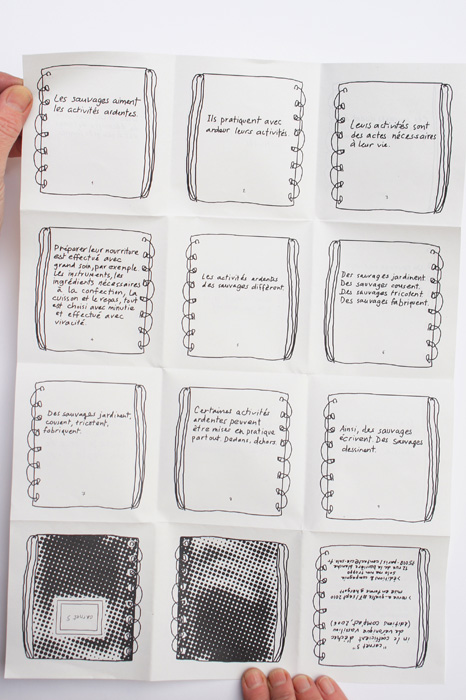 Les sauvages aiment
les activités ardentes.
1
Ils pratiquent avec
ardeur leurs activités.
2
Leurs activités sont
des actes nécessaires
à leur vie.
3
Préparer leur nourriture
est effectué avec
grand soin, par exemple.
Les instruments, les
ingrédients nécessaires
à la confection, la
cuisson et le repas, tout
est choisi avec minutie
et effectué avec
vivacité.
4
Les activités ardentes
des sauvages diffèrent.
Des sauvages jardinent.
Des sauvages cousent.
Des sauvages tricotent
Des sauvages fabriquent.
6
Des sauvages jardinent,
cousent, tricotent,
fabriquent.
Certaines activités
ardentes peuvent
être mises en pratique
partout. Dedans, dehors.
Ainsi, des sauvages
écrivent. Des Sauvages
dessinent.
9
carnet 5
"carnet 5"
in le coefficient d'échec
(édition compact, 2006)